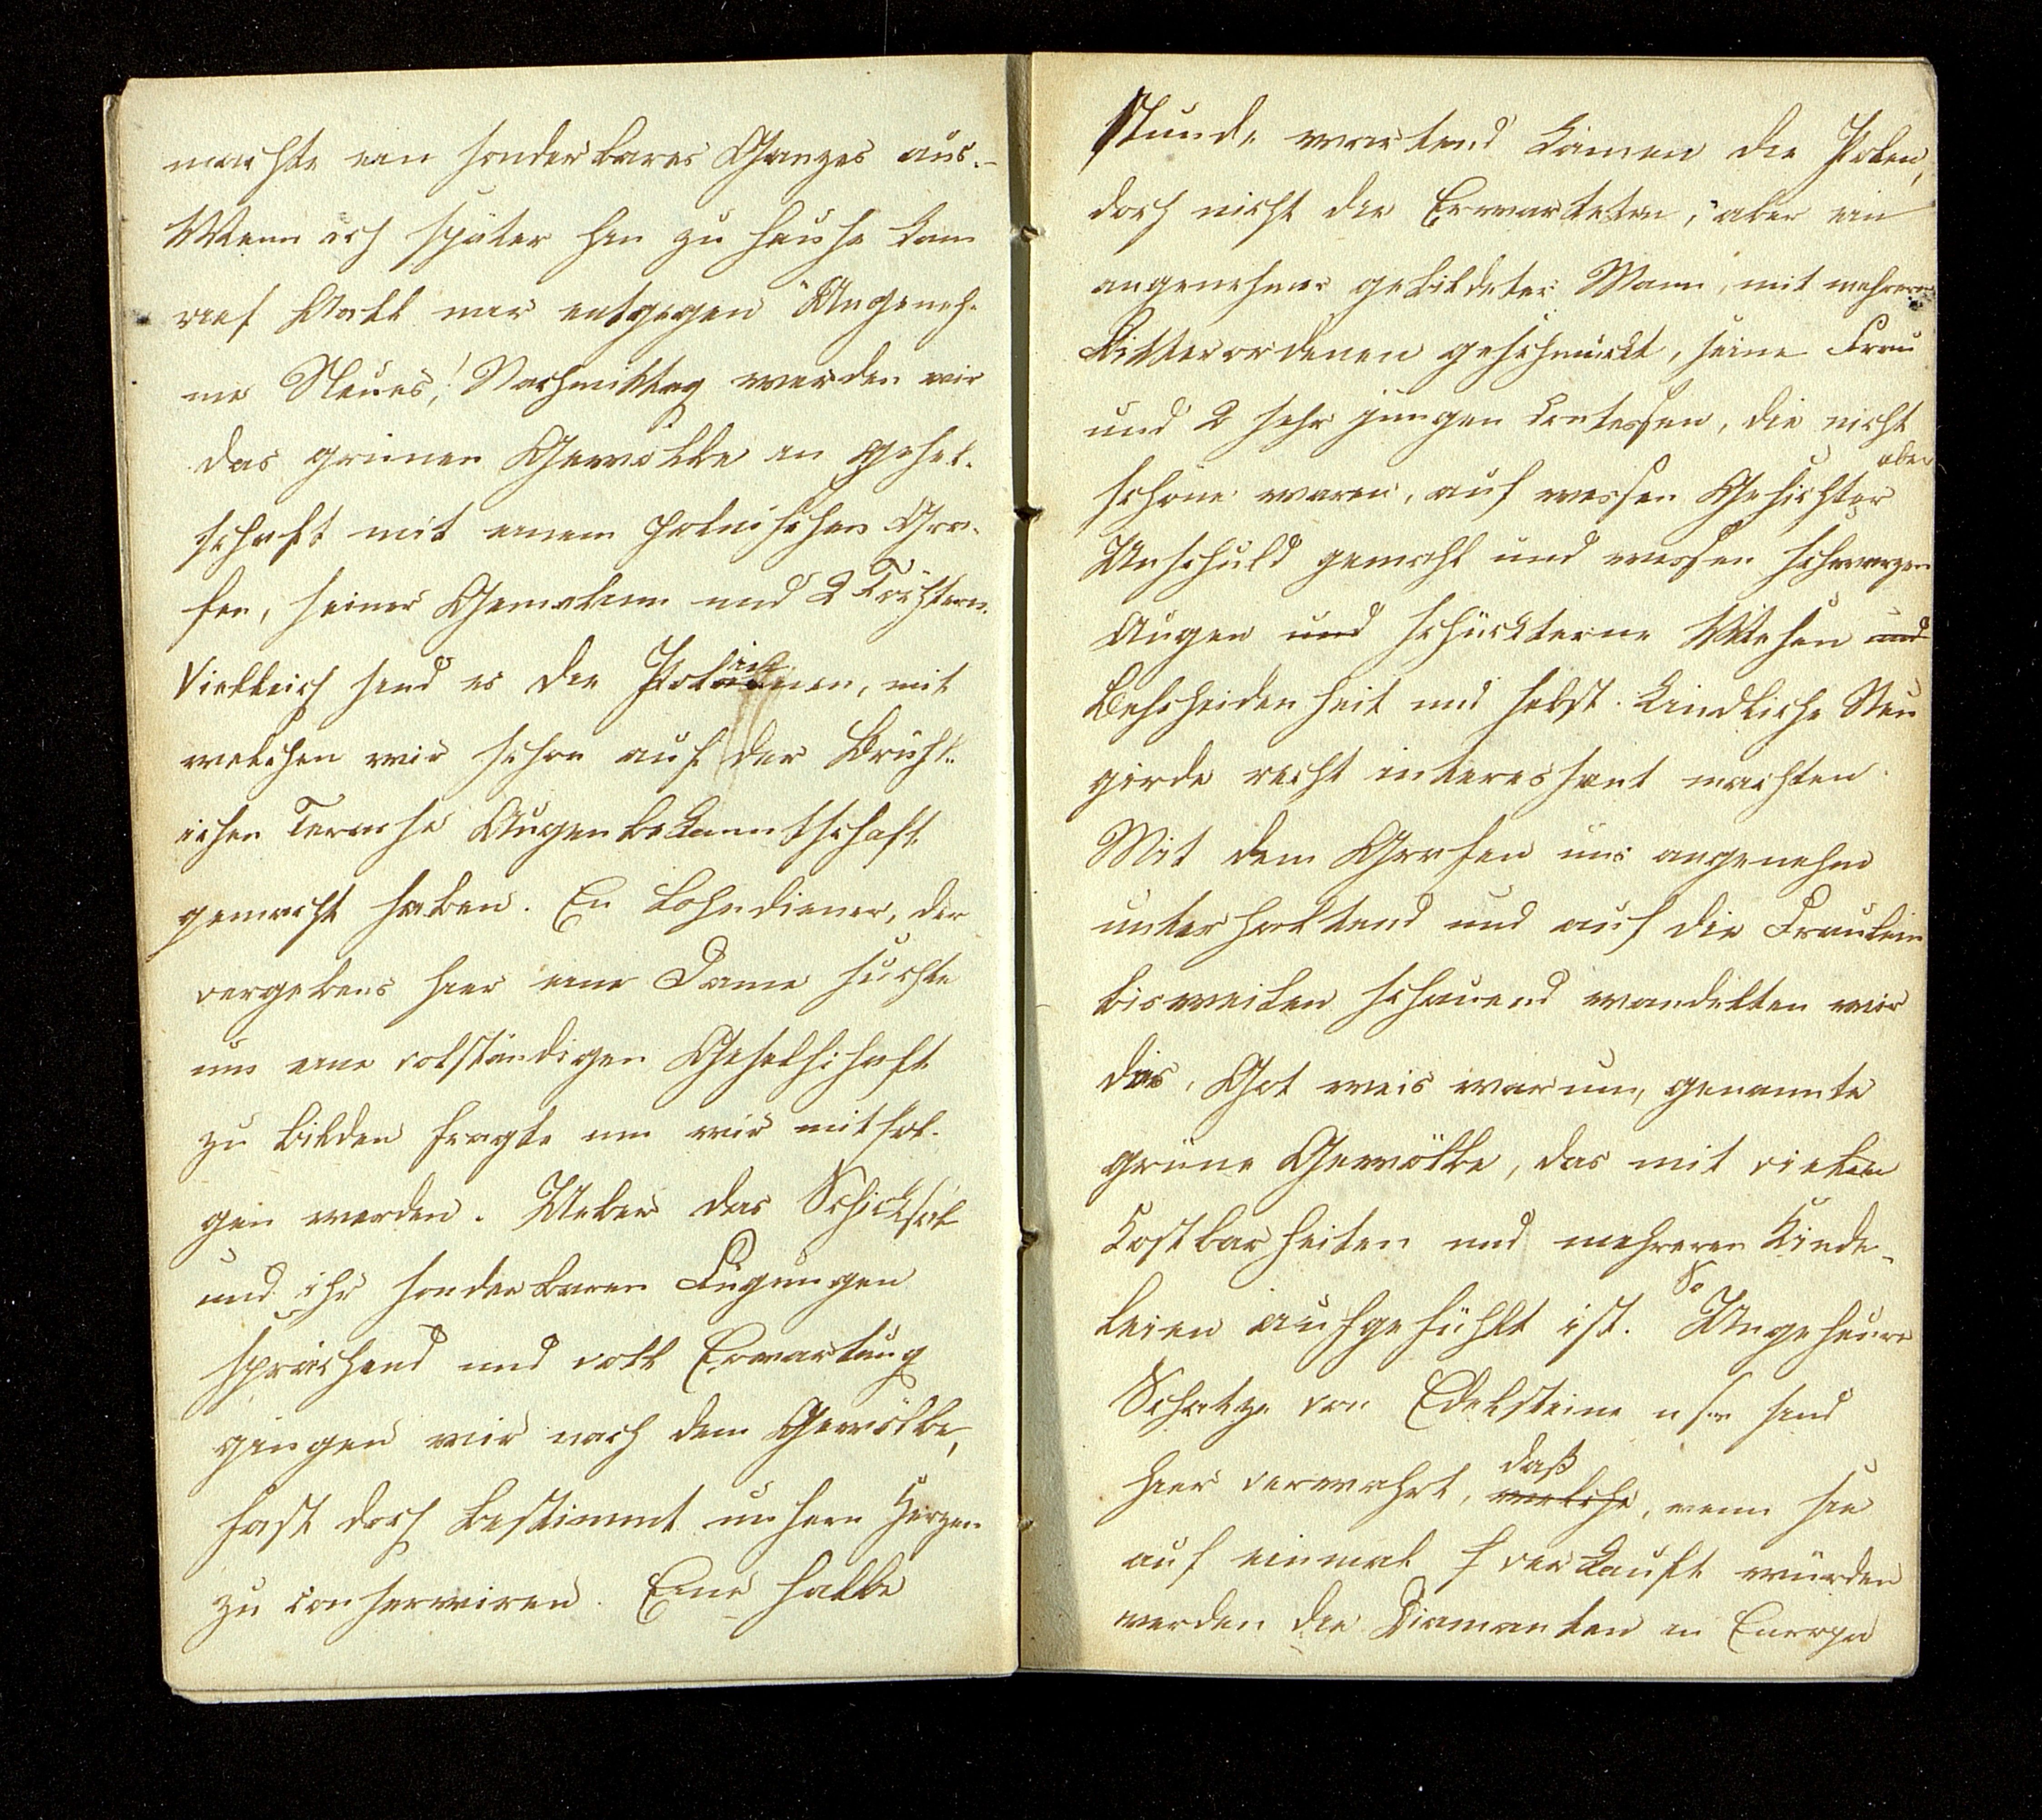 machte ein sonderbares Ganzes aus.-
Wenn ich später hin zu Hause kam
rief mir entgegen "Angeneh-
me Neues! Nachmittag werden wir
das grünen Gewölbe in Gesel-
schaft mit einem Polnischen Gra-
fen, seiner Gemalinn und 2 Töchtern.
Vielleich sind es die Polinnen, mit
welchen wir schon auf der Brühl-
ichen Terasse Augenbekanntschaft
gemacht haben. Ein Lohndiener, der
vergebens hier eine Dame suchte
um eine volständigen Geselschaft
zu bilden fragte um wir mitfol-
gen werden. Ueber das Schicksal
und ihr sonderbaren Fügungen
sprächend und voll Erwartung
gingen wir nach dem Gewölbe,
fast doch bestimmt unsern Herzen
zu conserwiren. Eine halbe
Stunde wartend kamen die Polen,
doch nicht die Erwarteten, aber ein
angenehmer gebildeter Mann, mit mehreren
Ritterordenen geschmückt, seine Frau
und 2 sehr jungen Contessen, die nicht
aber
schöne waren, auf wessen Gesichter
Unschuld gemahlt und wessen schwarzen
Augen und schückterne Wesen und
Bescheidenheit und selbst kindliche Neu
girde recht interessant machten.
Mit dem Grafen uns angenehm
unterhaltend und auf die Fraulein
bisweilen schauend wandelten wir
das, Got weis warum, genannte
grüne Gewölbe, das mit vielen
Kostbarheiten und mehreren Kinde-
So
leien aufgefühlt ist. Ungeheure
Schatze von Edelsteine usw sind
daß
hier verwahrt, welche, wenn sie
auf einmal verkauft würden
werden die Diamanten in Europa